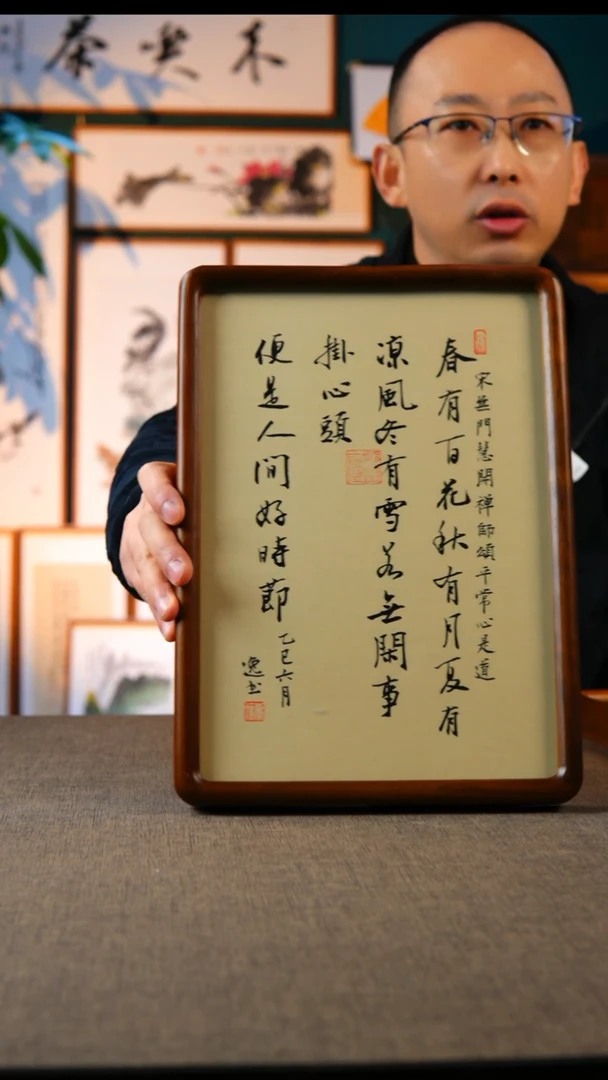 宋無門慧開禪師頌平常心是道
春有百花秋有月夏有
涼風冬有雪若無閑事
掛心頭
便是人間好時節
乙巳六月
逸书